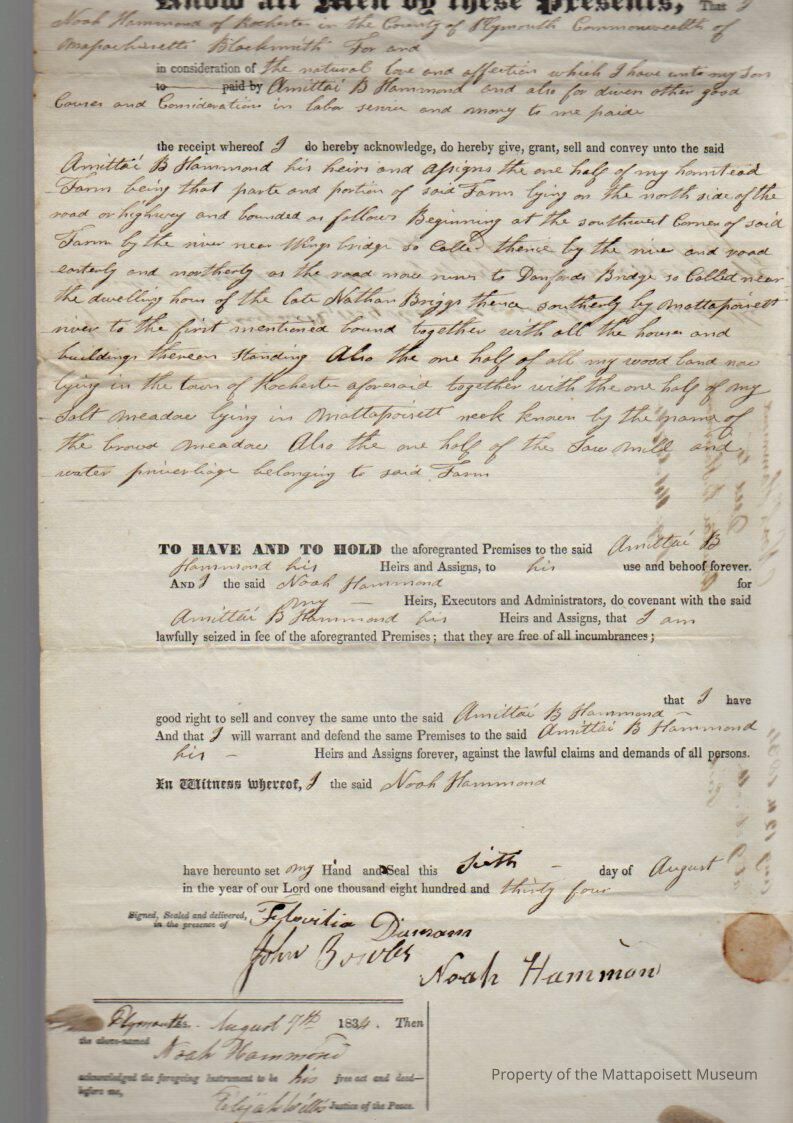 Know all Men by these Presents, That I
Noah Hammond of Rochester in the County of Plymouth Commonwealth of
Massachusetts Blacksmith For and
in consideration of the natural love and affection which I have unto my Son
to paid by Amittai B Hammond and also for divers other good
Causes and Considerations in labor service and money to me paide
the receipt whereof I do hereby acknowledge, do hereby give, grant, sell and convey unto the said
Amittai B Hammond his heirs and assigns the one half of my homstead
Farm being that parte and portion of said Farm lying on the north side of the
road or highway and bounded as follows Beginning at the southwest Corner of said
Farm by the river near Wings bridge so Called thence by the river and road
easterly and northerly as the road now runs to Danfords Bridge so Called near
the dwelling hous of the late Nathan Briggs thence southerly by Mattapoisett
river to the first mentioned bound together with all the houses and
buildings thereon standing Also the one half of all my wood land now
lying in the town of Rochester aforesaid together with the one half of my
Salt meadow lying in Mattapoisett neck known by the name of
the broad meadow Also the one half of the Saw mill and
water priverliage belonging to said Farm
TO HAVE AND TO HOLD the aforegranted Premises to the said Amittai B
Hammond his Heirs and Assigns, to his use and behoof forever.
AND I the said Noah Hammond for
my Heirs, Executors and Administrators, do covenant with the said
Amittai B Hammond his Heirs and Assigns, that I am
lawfully seized in fee of the aforegranted Premises; that they are free of all incumbrances;
that I have
good right to sell and convey the same unto the said Amittai B Hammond
And that I will warrant and defend the same Premises to the said Amittai B Hammond
his Heirs and Assigns forever, against the lawful claims and demands of all persons.
In Witness whereof, I the said Noah Hammond
have hereunto set my Hand and Seal this sixth day of August
in the year of our Lord one thousand eight hundred and thirty four
Signed, Sealed and delivered,
in the presence of
John Bowles
Noah Hammon
Plymouth ss. August 7th 1834. Then
the above-named
Noah Hammond
acknowledged the foregoing Instrument to be his free act and deed—
before me,
Elijah Willis Justice of the Peace.
Property of the Mattapoisett Museum